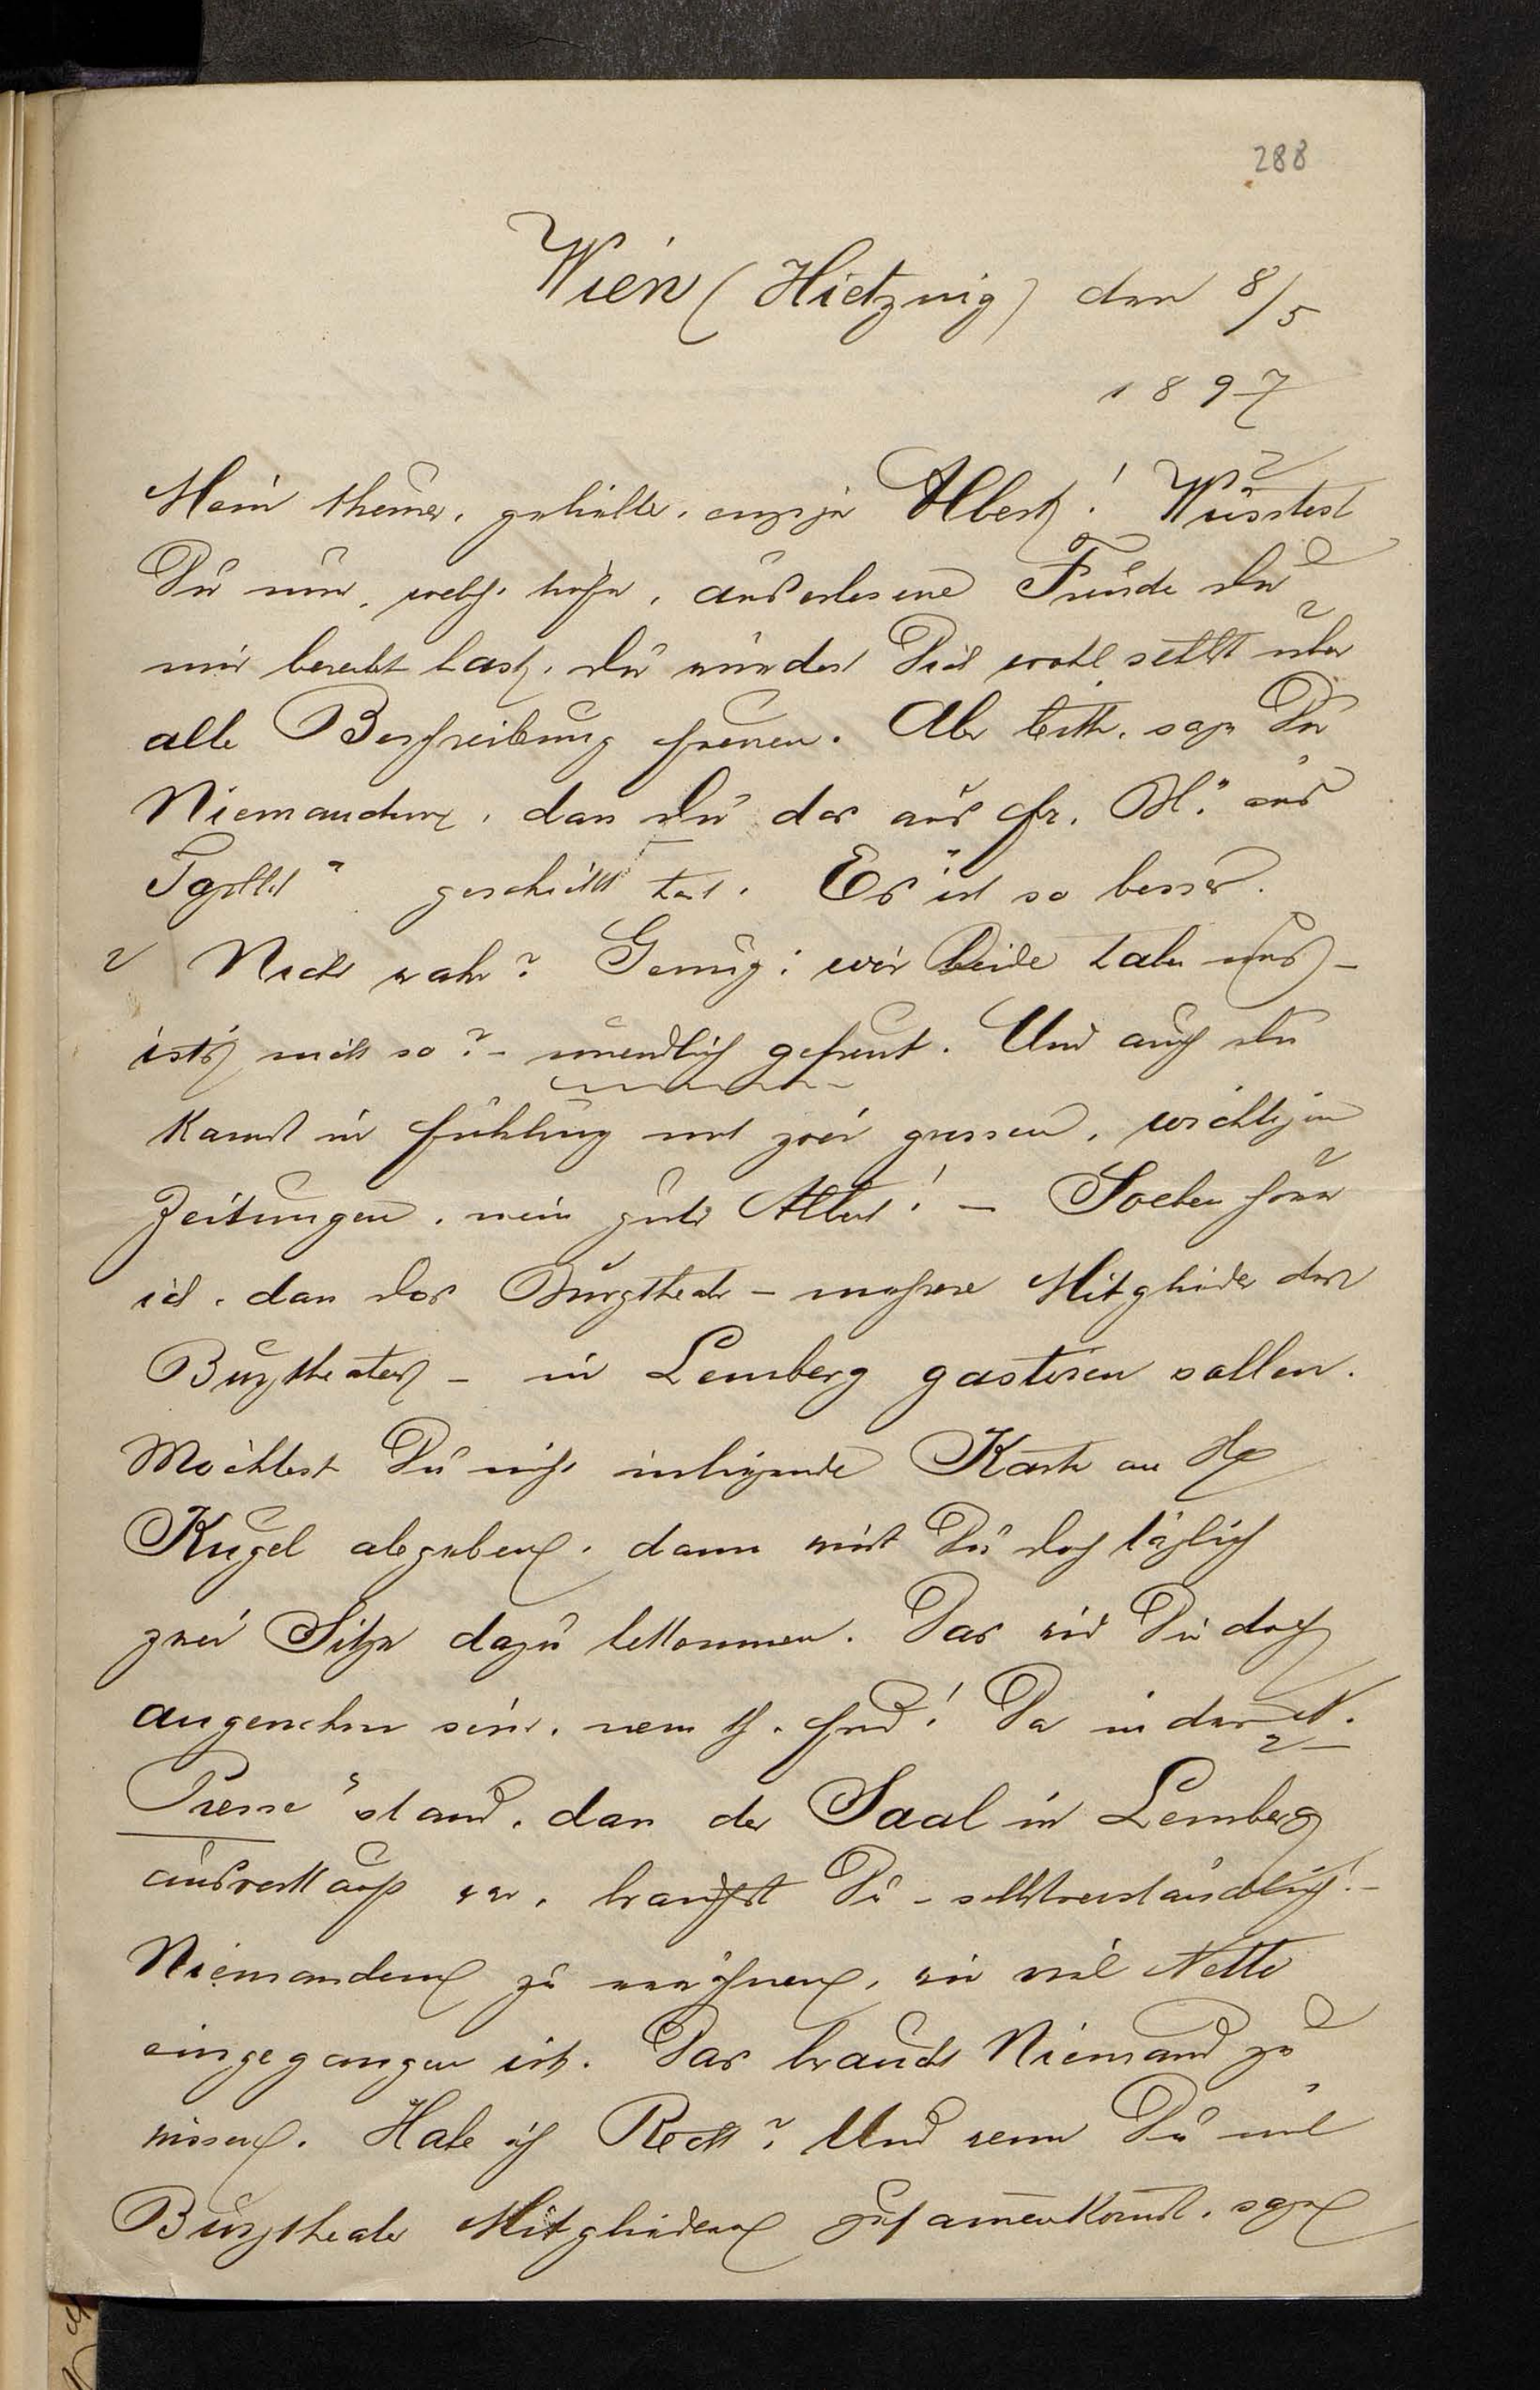 288
Wien (Hietzing) den 8/5
1897
Mein theurer, geliebter, einziger Albert! Wüsstest
Du nur, welche hohe, auserlesene Freude Du
mir bereitet hast, Du würdest Dich wohl selbst über
alle Beschreibung freuen. Aber bitte, sage Du
Niemandem, dass Du das aus Fr. Bl. aus
Tgbltt" geschickt hast. Es ist so besser.
Nicht wahr? Genug: wir Beide haben uns -
ists nicht so? - unendlich gefreut. Und auch Du
kamst in Fühlung mit zwei grossen, wichtigen
Zeitungen, mein guter Albert! - Soeben höre
ich, dass das Burgtheater - mehrere Mitglieder des
Burgtheaters - in Lemberg gastiren sollen.
Möchtest Du nicht inliegende Karte an H
Kugel abgeben, dann wirst Du doch täglich
zwei Sitze dazu bekommen. Das wird Dir doch
angenehm sein, mein th. Frd! Da in der N.
Presse" stand, dass der Saal in Lemberg
ausverkauft war, brauchst Du - selbstverständlich! -
Niemandem zu erwähnen, wie viel Netto
eingegangen ist. Das braucht Niemand zu
wissen. Habe ich Recht? Und wenn Du mit
Burgtheater Mitgliedern zusammenkommst, sage